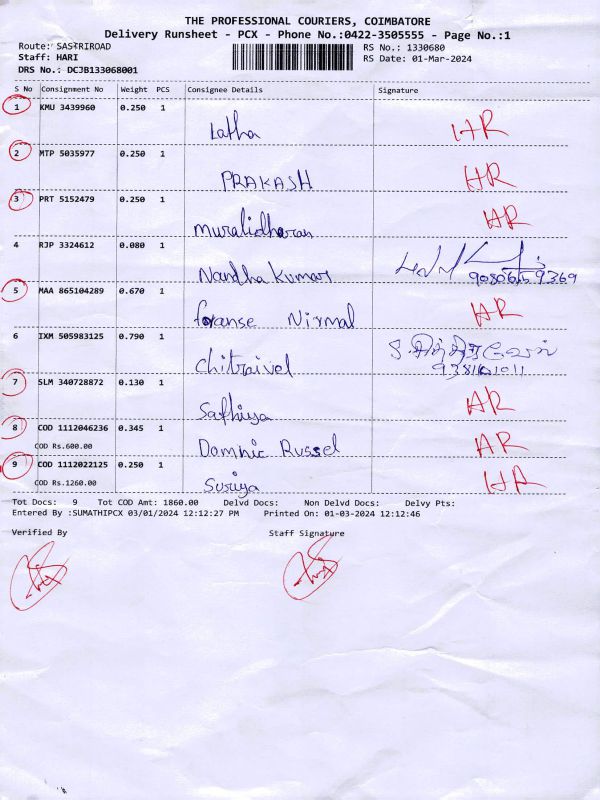 THE PROFESSIONAL COURIERS, COIMBATORE
Delivery Runsheet - PCX - Phone No.:0422-3505555 - Page No.:1
Route: SASTRIROAD RS No.: 1330680
Staff: HARI RS Date: 01-Mar-2024
DRS No.: DCJB133068001
S No Consignment No Weight PCS Consignee Details Signature
1 KMU 3439960 0.250 1
Latha HR
2 MTP 5035977 0.250 1
PRAKASH HR
3 PRT 5152479 0.250 1 HR
muralidharan
4 RJP 3324612 0.080 1
Nandha Kumar
5 MAA 865104289 0.670 1 HR
Nirmal
6 IXM 505983125 0.790 1
chitraivel
7 SLM 340728872 0.130 1 HR
Safhiya
8 COD 1112046236 0.345 1 HR
COD Rs.600.00 Dominic Russel
9 COD 1112022125 0.250 1
COD Rs.1260.00 Suriya
Tot Docs: 9 Tot COD Amt: 1860.00 Delvd Docs: Non Delvd Docs: Delvy Pts:
Entered By :SUMATHIPCX 03/01/2024 12:12:27 PM Printed On: 01-03-2024 12:12:46
Verified By Staff Signature